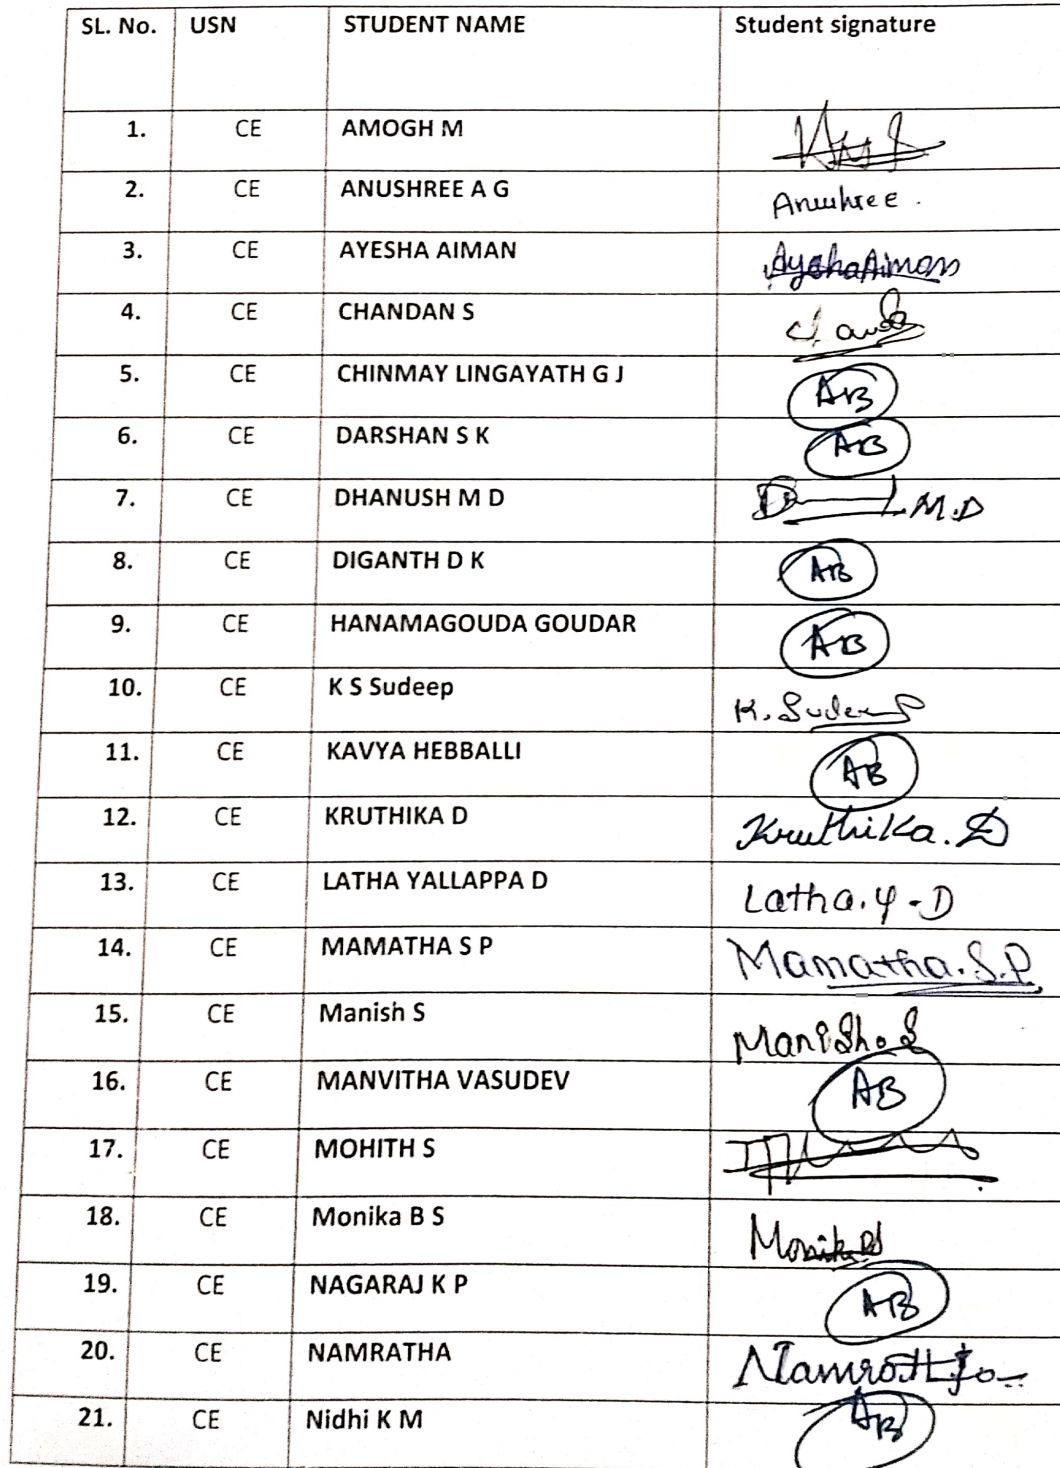 SL. No. USN STUDENT NAME Student signature
1. CE AMOGH M
2. CE ANUSHREE A G Anushree.
3. CE AYESHA AIMAN AyeshaAiman
4. CE CHANDAN S
5. CE CHINMAY LINGAYATH G J AB
6. CE DARSHAN S K AB
7. CE DHANUSH M D M.D
8. CE DIGANTH D K AB
9. CE HANAMAGOUDA GOUDAR AB
10. CE K S Sudeep K. Sudeep
11. CE KAVYA HEBBALLI AB
12. CE KRUTHIKA D Kruthika. D
13. CE LATHA YALLAPPA D Latha.Y-D
14. CE MAMATHA S P Mamatha.S.P
15. CE Manish S Manish.S
16. CE MANVITHA VASUDEV AB
17. CE MOHITH S
18. CE Monika B S Monika BS
19. CE NAGARAJ K P AB
20. CE NAMRATHA Namratha
21. CE Nidhi K M AB